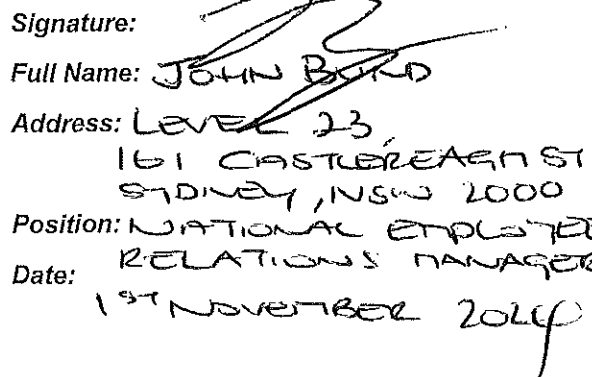 Signature:
Full Name: JOHN
Address: LEVEL 23,
161 CASTLEREAGH ST
SYDNEY, NSW 2000
Position: NATIONAL EMPLOYEE
RELATIONS MANAGER
Date:
1ST NOVEMBER 2024